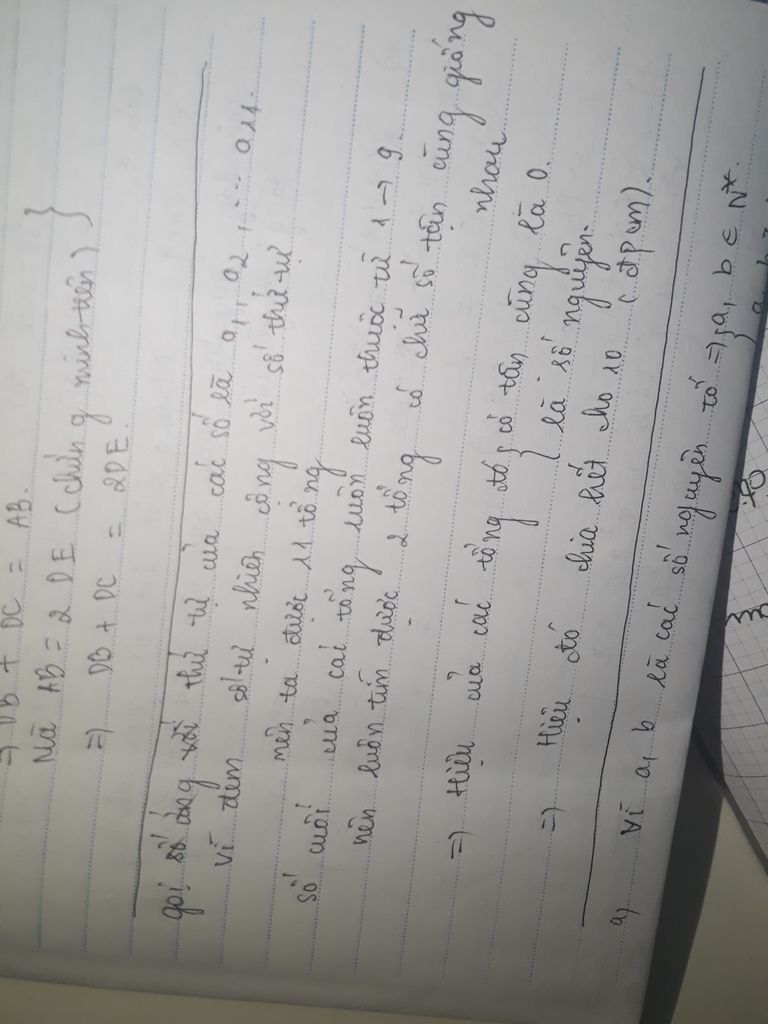 ⇒ DB + DC = AB.
Mà AB = 2 DE (chứng minh trên) }
⇒ DB + DC = 2DE.
gọi số ứng với thứ tự của các số là a1, a2, ... a11.
Vì đem số tự nhiên cộng với số thứ tự
nên ta được 11 tổng
số cuối của các tổng luôn luôn thuộc từ 1 → 9.
nên luôn tìm được 2 tổng có chữ số tận cùng giống
nhau
⇒ Hiệu của các tổng đó { có tận cùng là 0.
{ là số nguyên.
⇒ Hiệu đó chia hết cho 10 (đpcm).
a, Vì a, b là các số nguyên tố ⇒ { a, b ∈ N*.